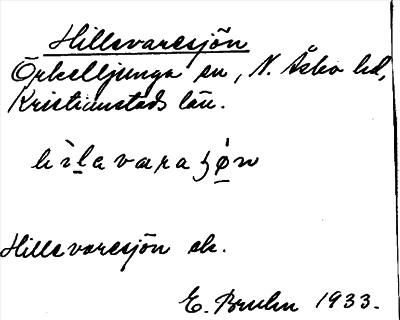 Hillevaresjön
Örkelljunga sn, N. Åsbo hd,
Kristianstads län.
hìlevaraʒø̀n
Hillevaresjön ek.
E. Bruhn 1933.